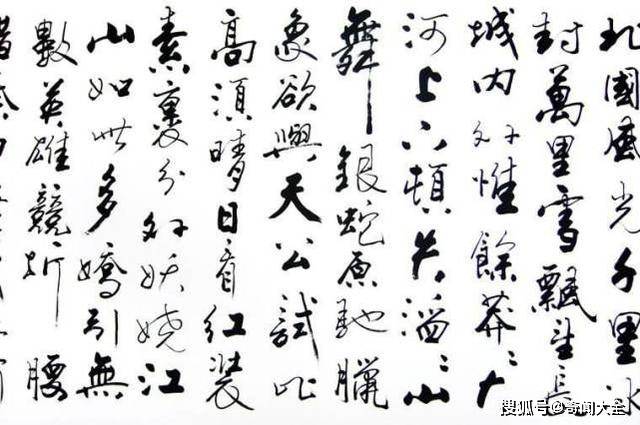 北國風光千里冰
封萬里雪飄望長
城內外惟餘莽〻大
河上下頓失滔〻山
舞銀蛇原馳臘
象欲與天公試比
高須晴日看紅裝
素裹分外妖嬈江
山如此多嬌引無
數英雄競折腰
惜秦
搜狐号@奇闻大全